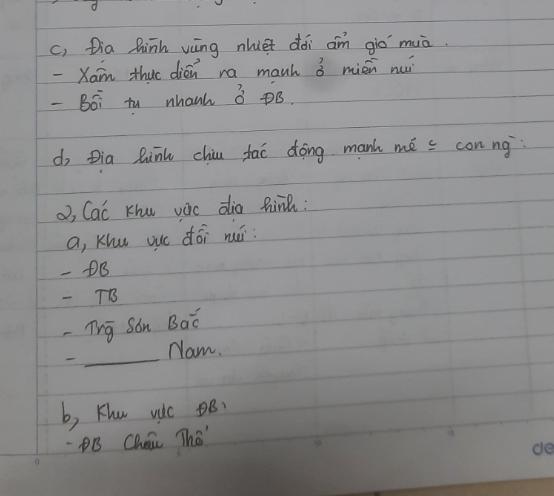 c, Địa hình vùng nhiệt đới ẩm gió mùa.
- Xâm thực diễn ra mạnh ở miền núi
- Bồi tụ nhanh ở ĐB.
d, Địa hình chịu tác động mạnh mẽ con ng`:
2, Các khu vực địa hình:
a, Khu vực đồi núi:
- ĐB
- TB
- Trg Sơn Bắc
- ______ Nam.
b, Khu vực ĐB:
- ĐB Châu Thổ
de